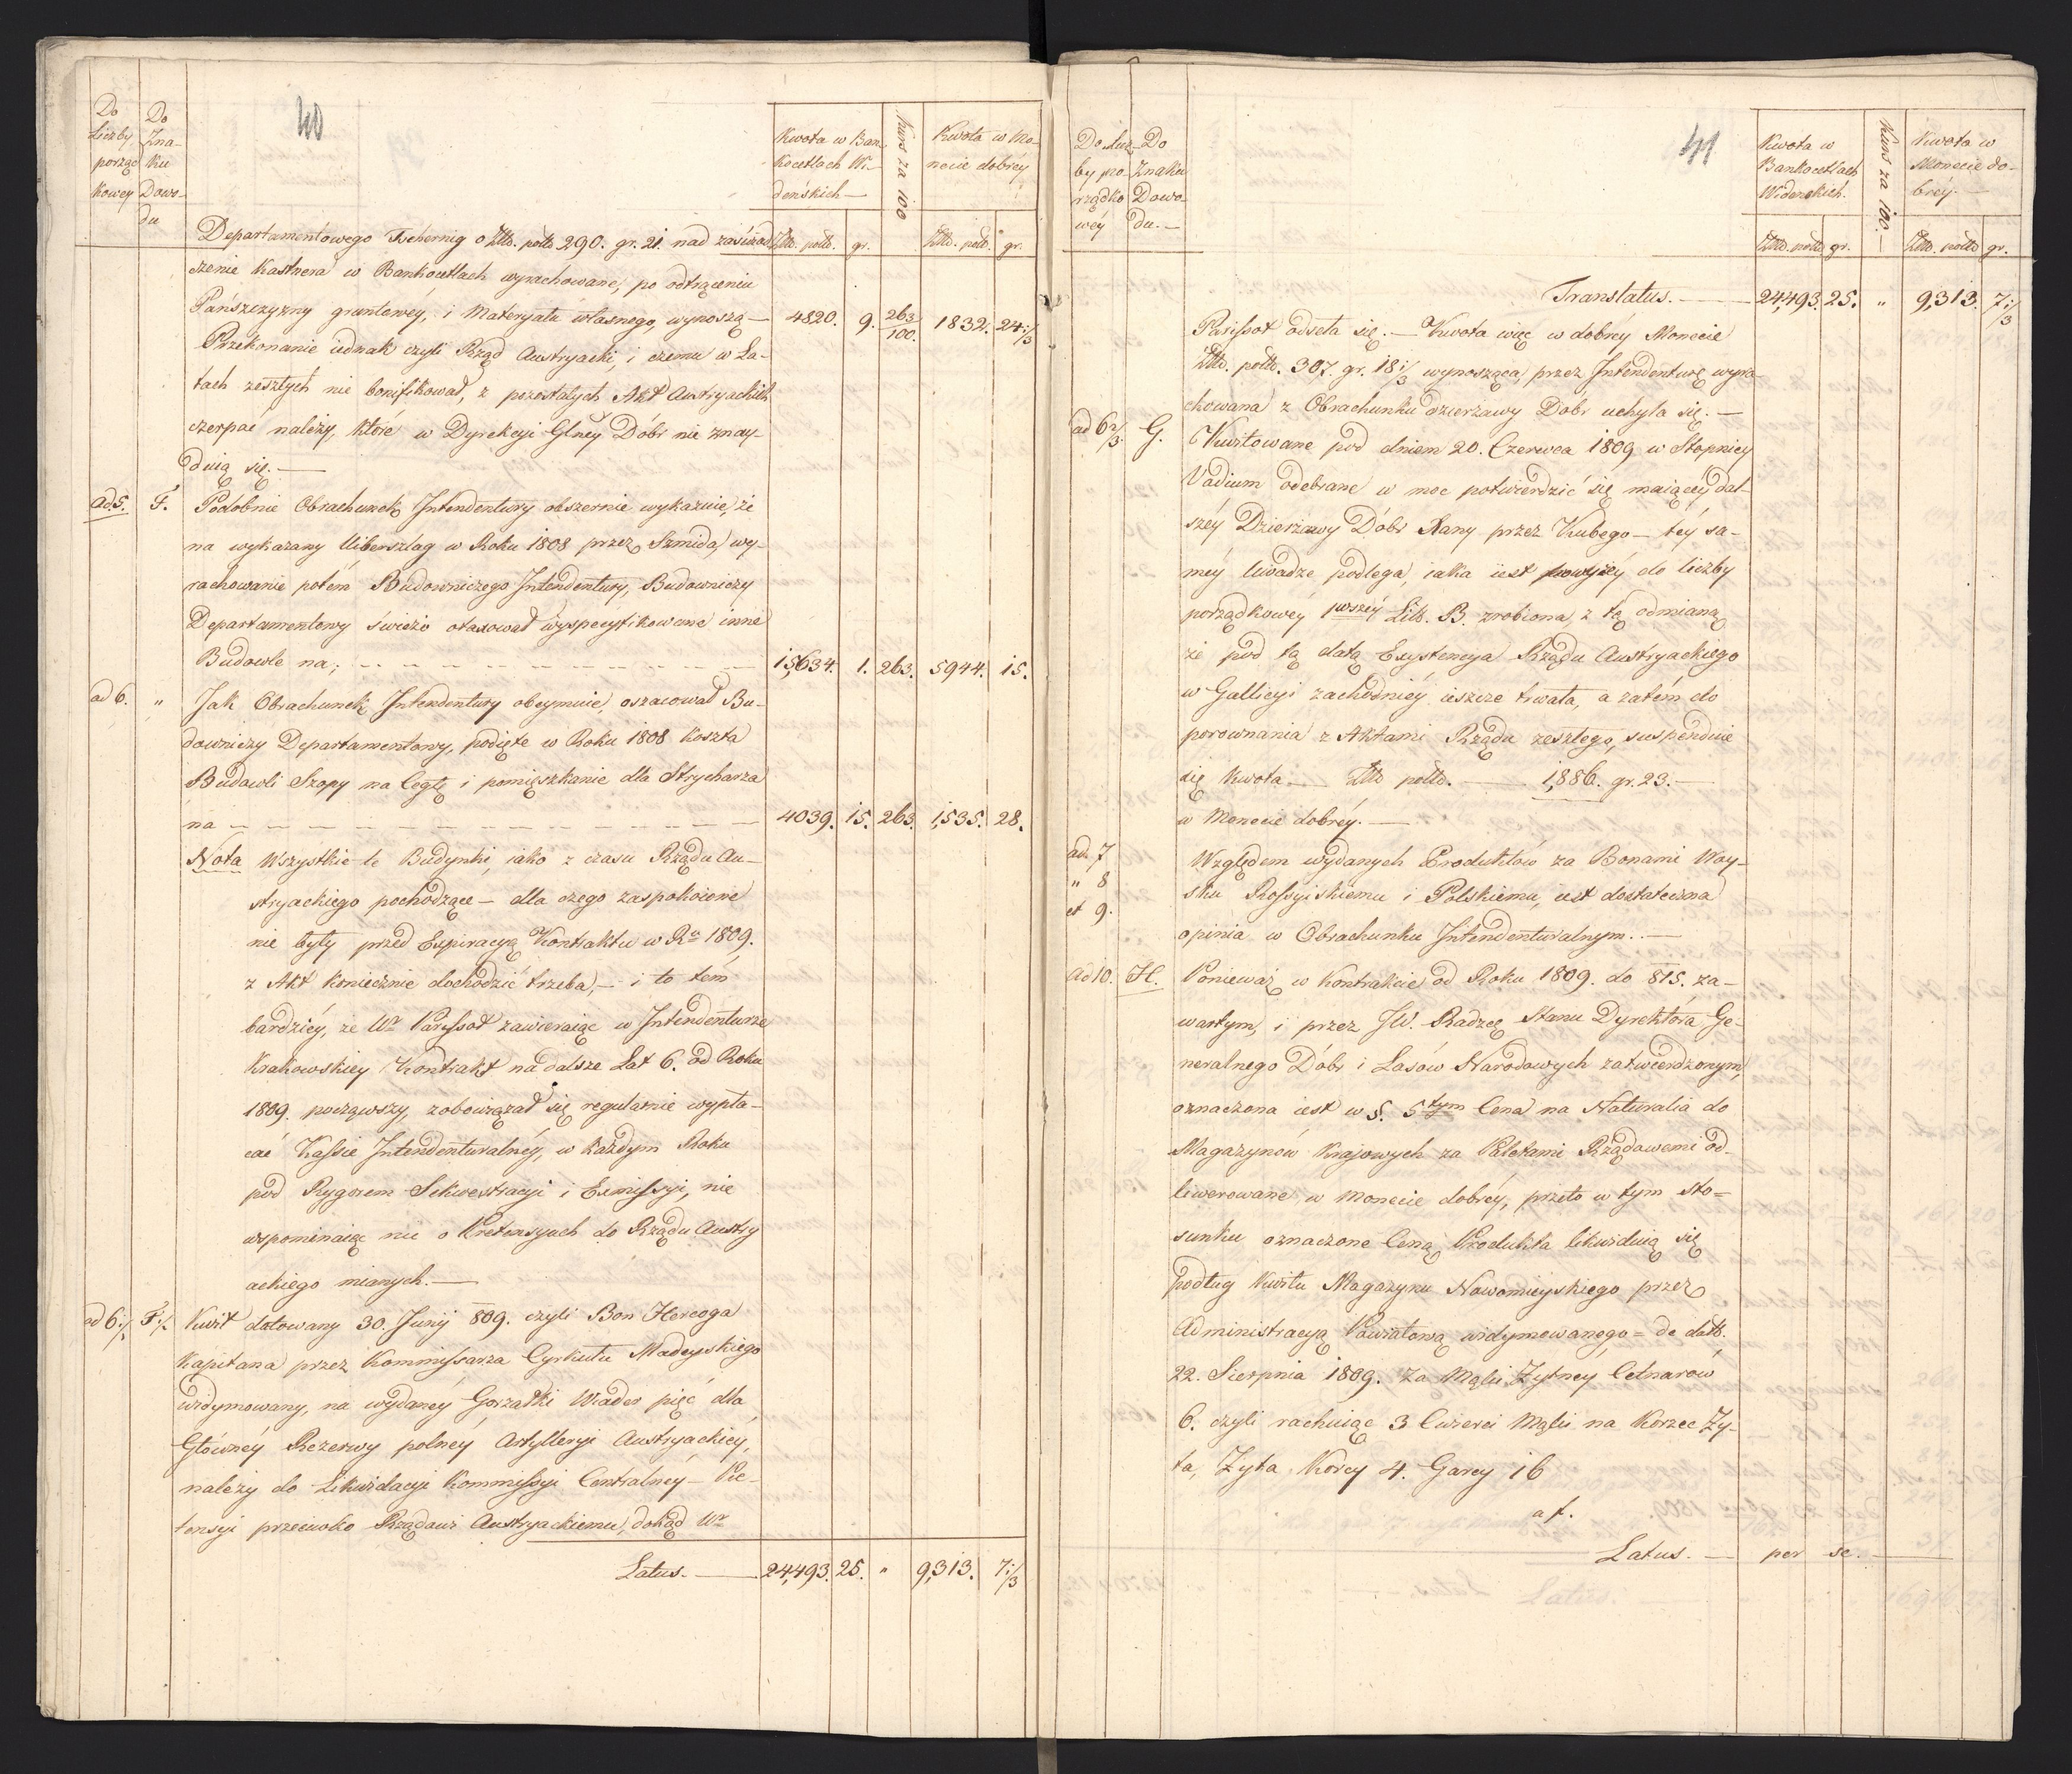 40
Do Liczby porząd kowey
Do Zna- ku Dowo- du
Kwota w Ban- kocetlach Wi- deńskich —
Kurs za 100
Kwota w Mo- necie dobréy
Złłd. polld. gr.
Złłd. polld. gr.
Departamentowego Tschernig o Złłd. polld 290. gr. 21. nad zaświad-
czenie Kastnera w Bankocetlach wyrachowane, po odtrąceniu
Pańszczyzny gruntowéy, i Materyału własnego, wynoszą — 4820. 9. 263/100. 1832. 24 1/3
Przekonanie iednak czyli Rząd Austryacki, i czemu w La-
tach zeszłych nie bonifikował, z pozostałych Akt Austryackich
czerpać należy, które w Dyrekcyi Glney Dóbr nie znay-
duią się. —
ad 5. F. Podobnie Obrachunek Intendentury obszernie wykazuie, że
na wykazany Uiberszlag w Roku 1808 przez Szmida, wy-
rachowanie potém Budowniczego Intendentury, Budowniczy
Departamentowy świeżo otaxował wyspecyfikowane inne
Budowle na; — — — 15,634. 1. 263. 5944. 15.
ad 6. " Jak Obrachunek Intendentury obeymuie, oszacował Bu-
downiczy Departamentowy, podięte w Roku 1808 koszta
Budowli Szopy na Cegłę i pomięszkanie dla Strycharza
na — — — 4039. 15. 263. 1,535. 28.
Nota Wszystkie te Budynki, iako z czasu Rządu Au-
stryackiego pochodzące — dla czego zaspokoione
nie były przed Expiracyą Kontraktu w Ru 1809,
z Akt koniecznie dochodzić trzeba, — i to tem
bardziéy, że Wr Parissot zawieraiąc w Intendenturze
Krakowskiey Kontrakt na dalsze Lat 6. od Roku
1809. począwszy, zobowiązał się regularnie wypła-
cać Kassie Intendenturalnéy, w każdym Roku
pod Rygorem Sekwestracyi i Exmissyi, nie
wspominaiąc nic o Pretensyach do Rządu Austry
ackiego mianych. —
ad 6 1/3 F 1/2 Kwit datowany 30. Junij 809. czyli Bon Hercoga
Kapitana przez Kommissarza Cyrkułu Madeyskiego
widymowany, na wydanéy Gorzałki Wiader pięć dla
Głównéy Rezerwy polnéy Artylleryi Austryackiey,
należy do Likwidacyi Kommissyi Centralnéy — Pre-
tensyi przeciwko Rządowi Austryackiemu, dokąd Wr
Latus. — 24,493. 25. " 9,313. 7 1/3
41
Do Licz- by po- rządko wéy
Do Znaku Dowo- du. —
Kwota w Bankocetlach Wideńskich.
Kurs za 100. —
Kwota w Monecie do- bréy. —
Złłd. polld gr.
Złłd. polld gr.
Translatus. — 24,493. 25. " 9,313. 7 1/3
Parissot odseła się. — Kwota więc w dobréy Monecie
Złłd. polld. 307. gr. 18 1/3 wynosząca, przez Intendenturę wyra-
chowana z Obrachunku dzierżawy Dobr uchyla się. —
ad 6 2/3. G. Kwitowane pod dniem 20. Czerwca 1809 w Stopnicy
Vadium odebrane w moc potwierdzić się maiącéy dal-
széy Dzierżawy Dóbr Xany przez Kubego — téy sa-
méy Uwadze podlega, iaka iest powyżéy do liczby
porządkowéy 1wszéy Lit. B. zrobiona, z tą odmianą
że pod tą datą Exystencya Rządu Austryackiego
w Gallicyi zachodniéy ieszcze trwała, a zatém do
porownania z Aktami Rządu zeszłego, suspenduie
się kwota — Złłd polld. — 1,886. gr. 23. —
w Monecie dobréy. —
ad. 7
" 8
et 9. Względem wydanych Produktów za Bonami Woy-
sku Rossyiskiemu i Polskiemu, iest dostateczna
opinia w Obrachunku Intendenturalnym. —
ad 10. H. Ponieważ w Kontrakcie od Roku 1809. do 815. za-
wartym, i przez JW. Radzcę Stanu Dyrektora Ge-
neralnego Dóbr i Lasów Narodowych zatwierdzonym,
oznaczona iest w §. 5tym Cena na Naturalia do
Magazynów Krajowych za Paletami Rządowemi od-
liwerowane, w Monecie dobréy, przeto w tym sto-
sunku oznaczone Ceną Produkta likwiduią się
podług kwitu Magazynu Nowomieyskiego przez
Administracyą Powiatową widymowanego = de dato.
22. Sierpnia 1809. za Mąki Żytnéy Cetnarów
6. czyli rachuiąc 3 Cwierci Mąki na Korzec Ży-
ta, Żyta Korcy 4. Garcy 16
af.
Latus. — per se. —